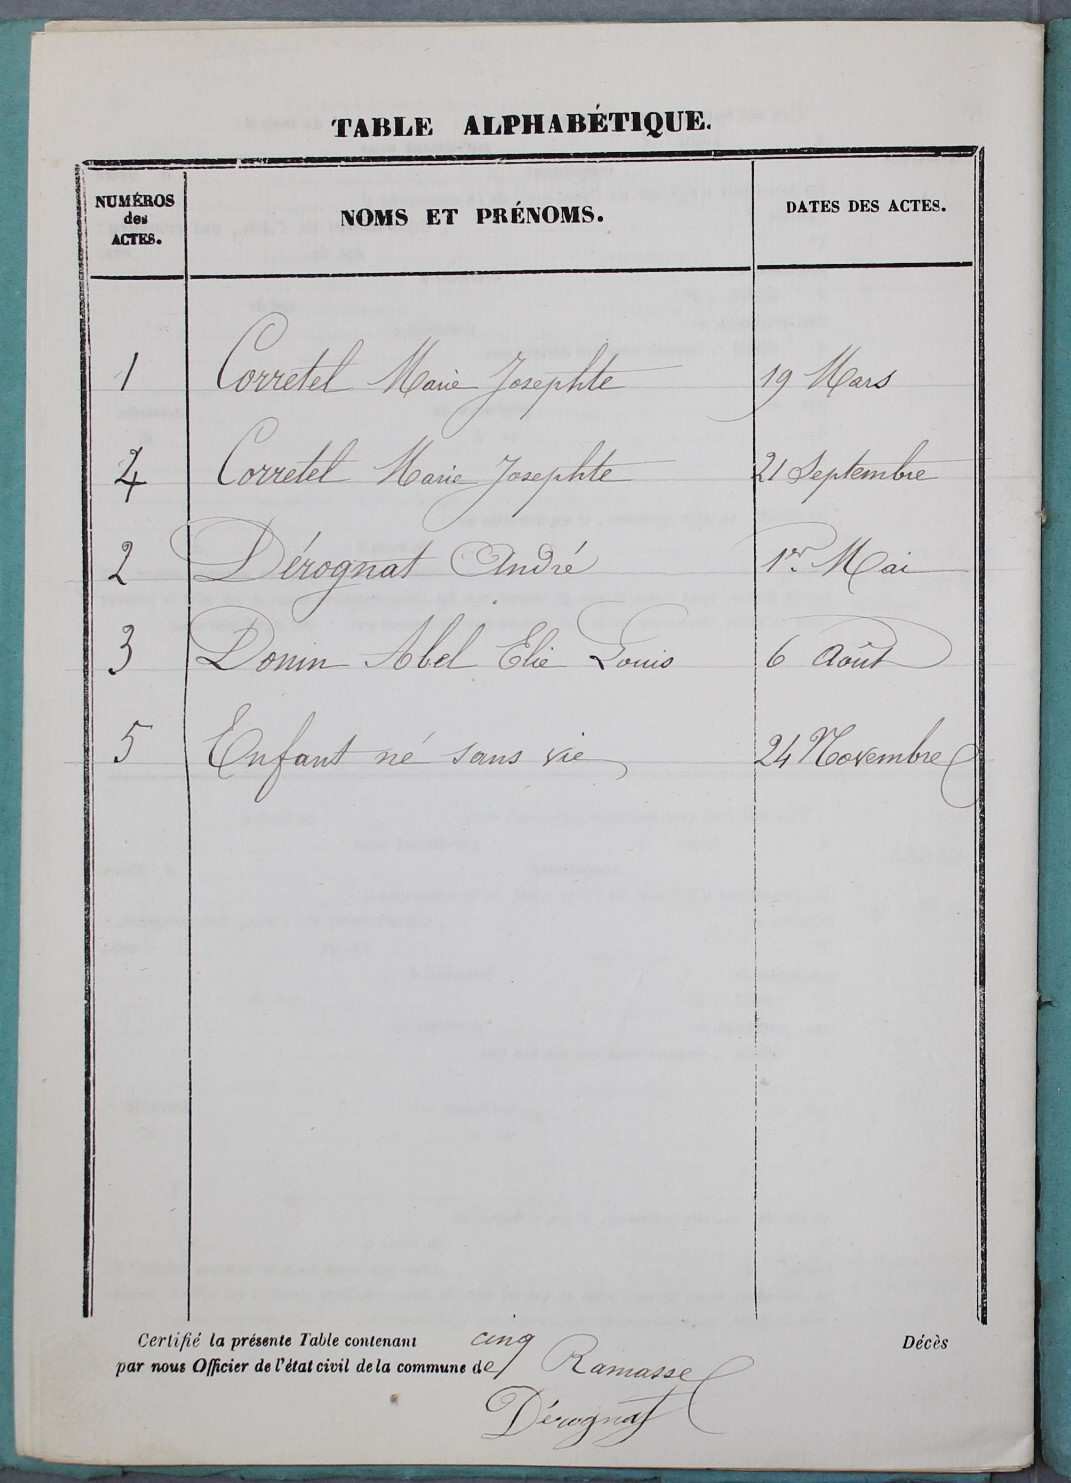 TABLE ALPHABÉTIQUE.
NUMÉROS
des
ACTES.
NOMS ET PRÉNOMS.
DATES DES ACTES.
1 Corretel Marie Josephte 19 Mars
4 Corretel Marie Josephte 21 Septembre
2 Dérognat André 1er Mai
3 Donin Abel Elie Louis 6 Août
5 Enfant né sans vie 24 Novembre
Certifié la présente Table contenant cinq Décès
par nous Officier de l'état civil de la commune de Ramasse
Dérognat